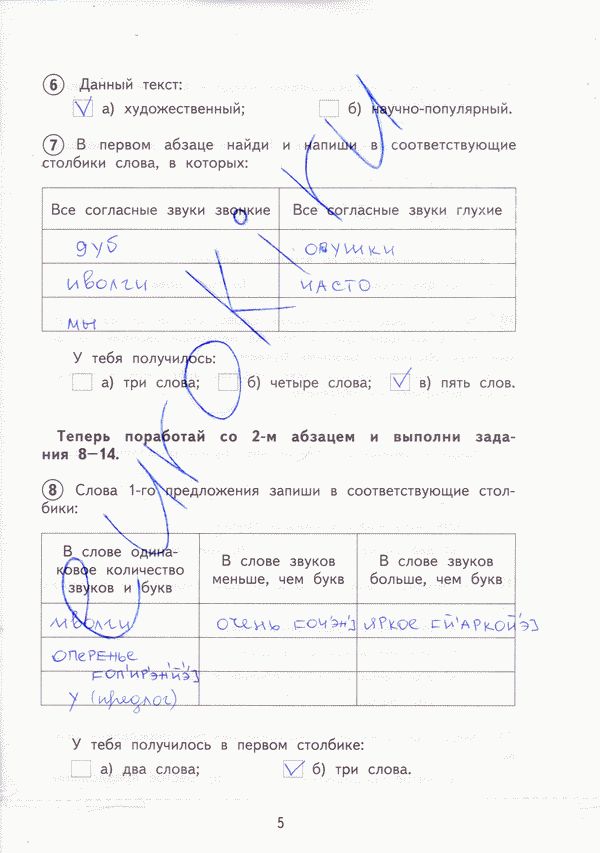 6 Данный текст:
а) художественный; б) научно-популярный.
7 В первом абзаце найди и напиши в соответствующие
столбики слова, в которых:
Все согласные звуки звонкие Все согласные звуки глухие
дуб опушки
иволги часто
мы
У тебя получилось:
а) три слова; б) четыре слова; в) пять слов.
Теперь поработай со 2-м абзацем и выполни зада-
ния 8—14.
8 Слова 1-го предложения запиши в соответствующие стол-
бики:
В слове одина-
ковое количество
звуков и букв
В слове звуков
меньше, чем букв
В слове звуков
больше, чем букв
иволги очень [оч'эн'] яркое [й'аркой'э]
оперенье
[оп'ир'эн'й'э]
у (предлог)
У тебя получилось в первом столбике:
а) два слова; б) три слова.
5